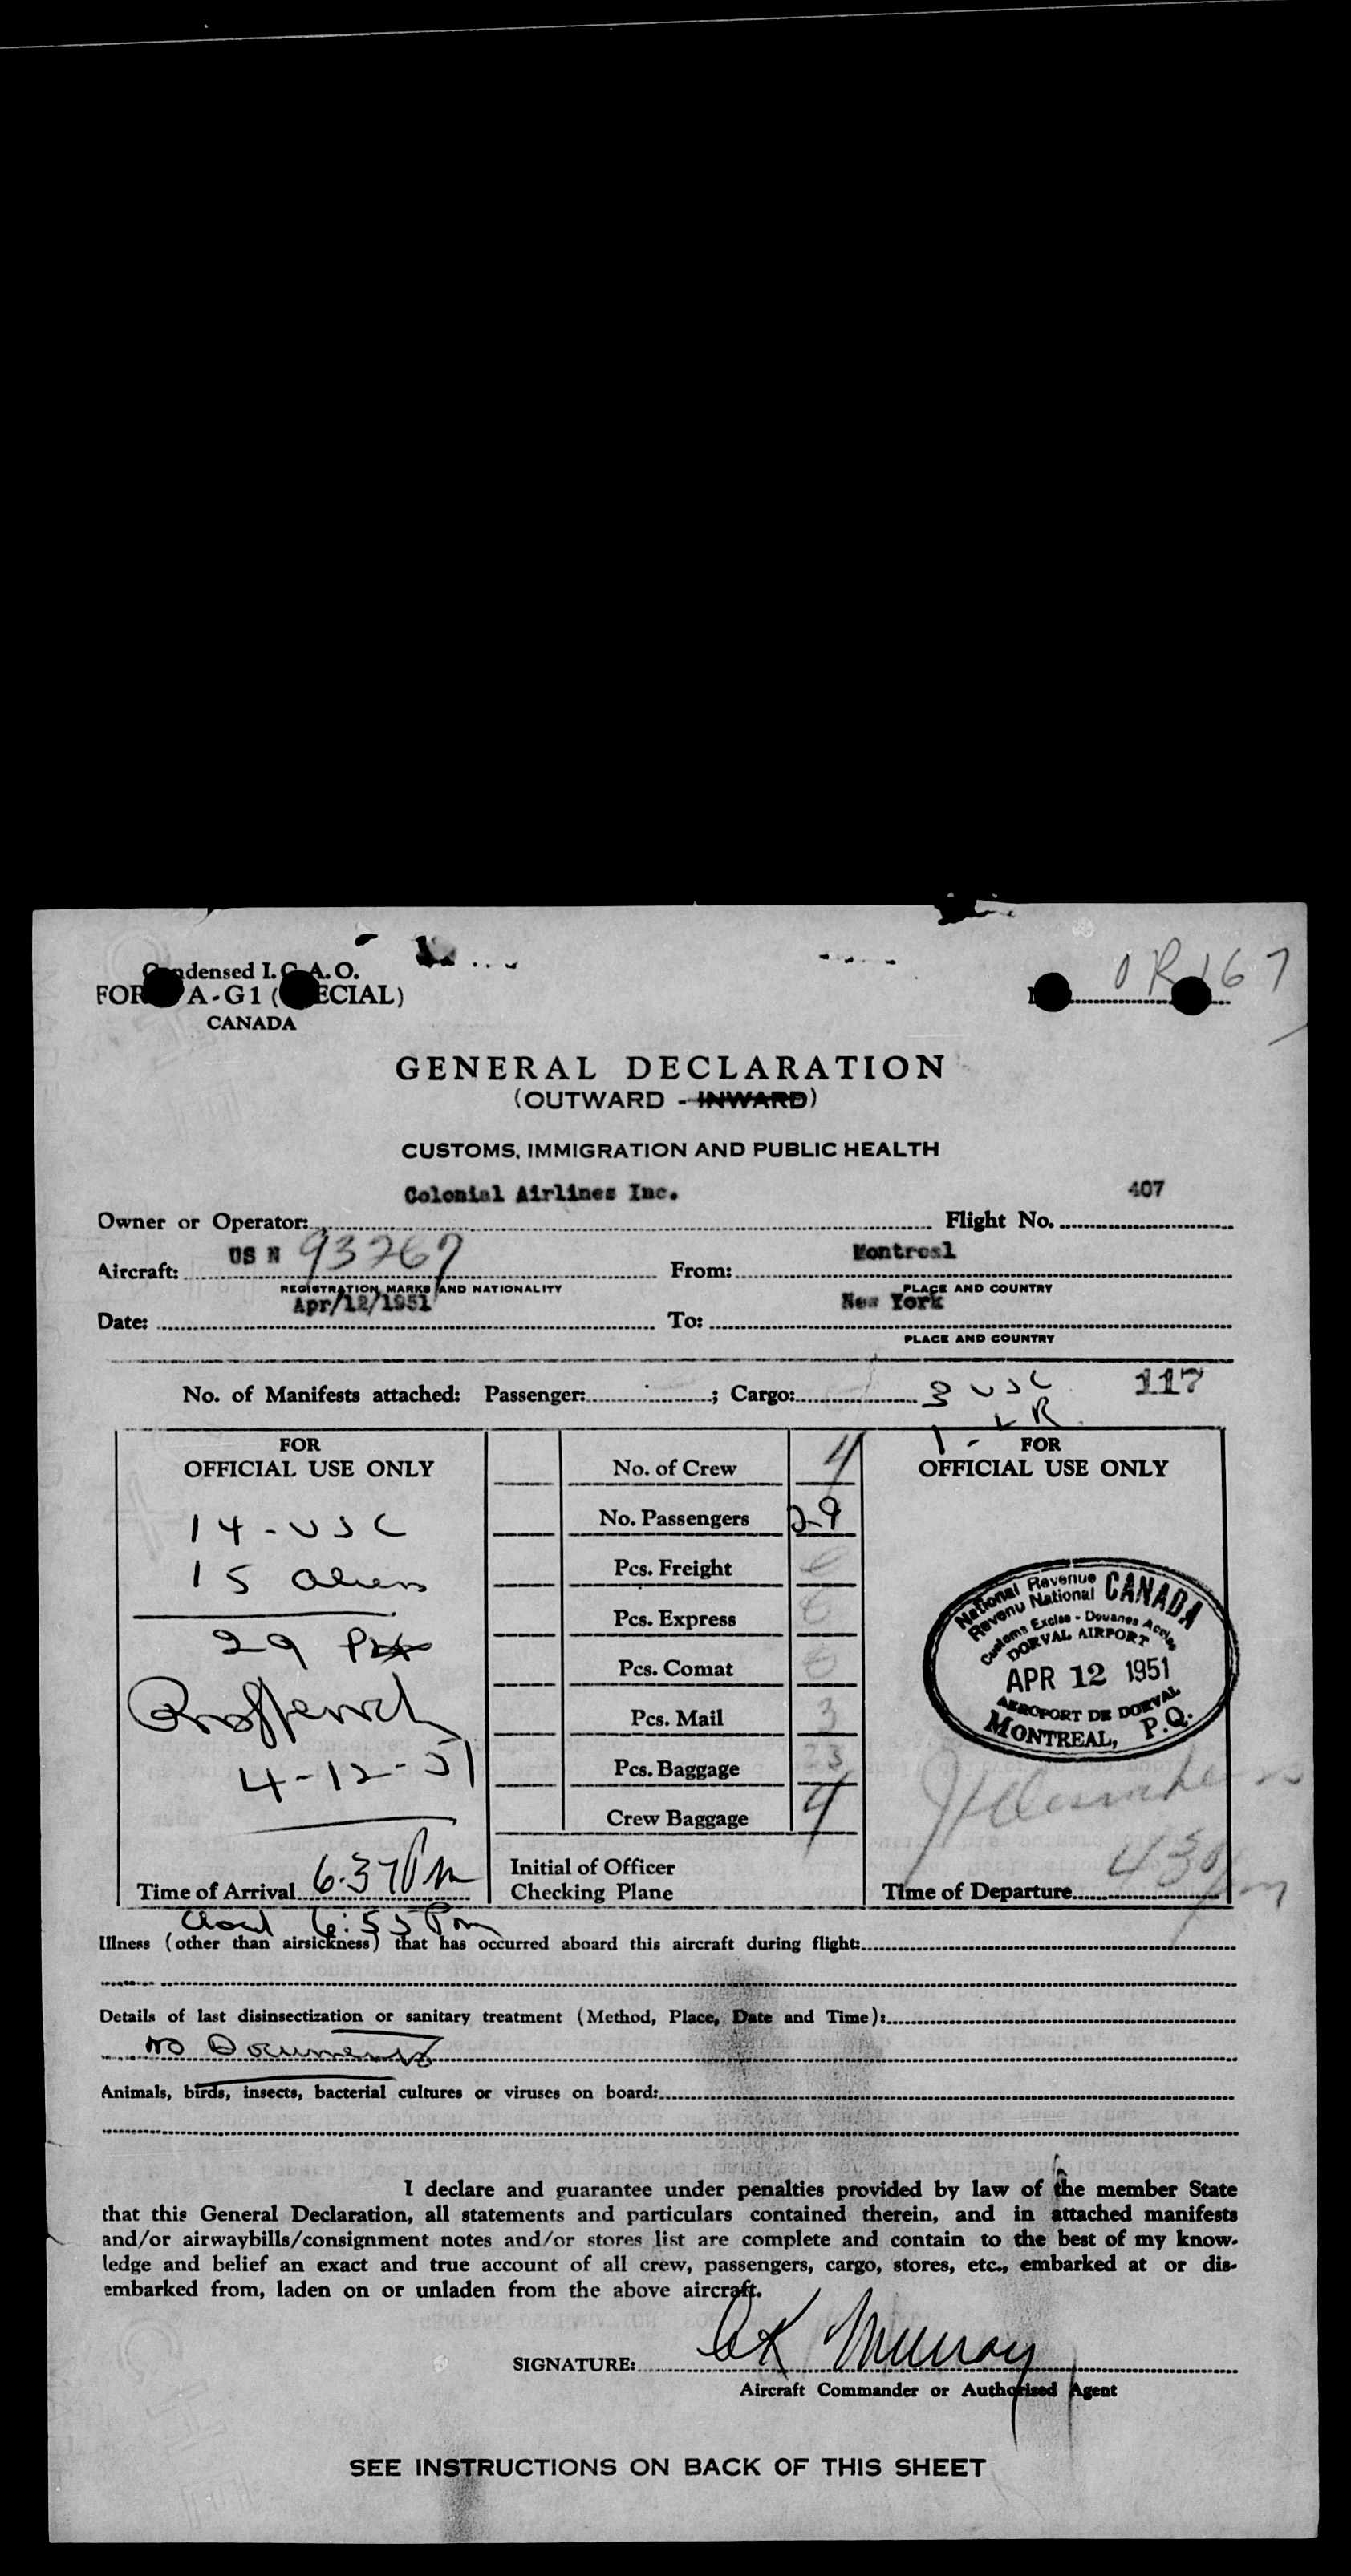 Condensed I.C.A.O.
0R167
FORM A-G1 (SPECIAL)
CANADA
GENERAL DECLARATION
(OUTWARD - INWARD)
CUSTOMS, IMMIGRATION AND PUBLIC HEALTH
Colonial Airlines Inc. 407
Owner or Operator: Flight No.
US N 93267 Montreal
Aircraft: From:
REGISTRATION MARKS AND NATIONALITY PLACE AND COUNTRY
Apr/12/1951 New York
Date: To:
PLACE AND COUNTRY
No. of Manifests attached: Passenger: ; Cargo: 3 USC 117
1 - LR
FOR FOR
OFFICIAL USE ONLY No. of Crew 4 OFFICIAL USE ONLY
14-USC No. Passengers 29
15 aliens Pcs. Freight
Pcs. Express
29 Pcs. Comat
Pcs. Mail 3
4-12-51 Pcs. Baggage 23
Crew Baggage 4
National Revenue CANADA
Revenu National
Customs Excise - Douanes Accise
DORVAL AIRPORT
APR 12 1951
AEROPORT DE DORVAL
MONTREAL, P.Q.
Initial of Officer
Checking Plane
Time of Arrival 6.37 Pm
Time of Departure 430 pm
6:55 Pm
Illness (other than airsickness) that has occurred aboard this aircraft during flight:
Details of last disinsectization or sanitary treatment (Method, Place, Date and Time):
No Documents
Animals, birds, insects, bacterial cultures or viruses on board:
I declare and guarantee under penalties provided by law of the member State
that this General Declaration, all statements and particulars contained therein, and in attached manifests
and/or airwaybills/consignment notes and/or stores list are complete and contain to the best of my know-
ledge and belief an exact and true account of all crew, passengers, cargo, stores, etc., embarked at or dis-
embarked from, laden on or unladen from the above aircraft.
SIGNATURE: CK Murray
Aircraft Commander or Authorized Agent
SEE INSTRUCTIONS ON BACK OF THIS SHEET